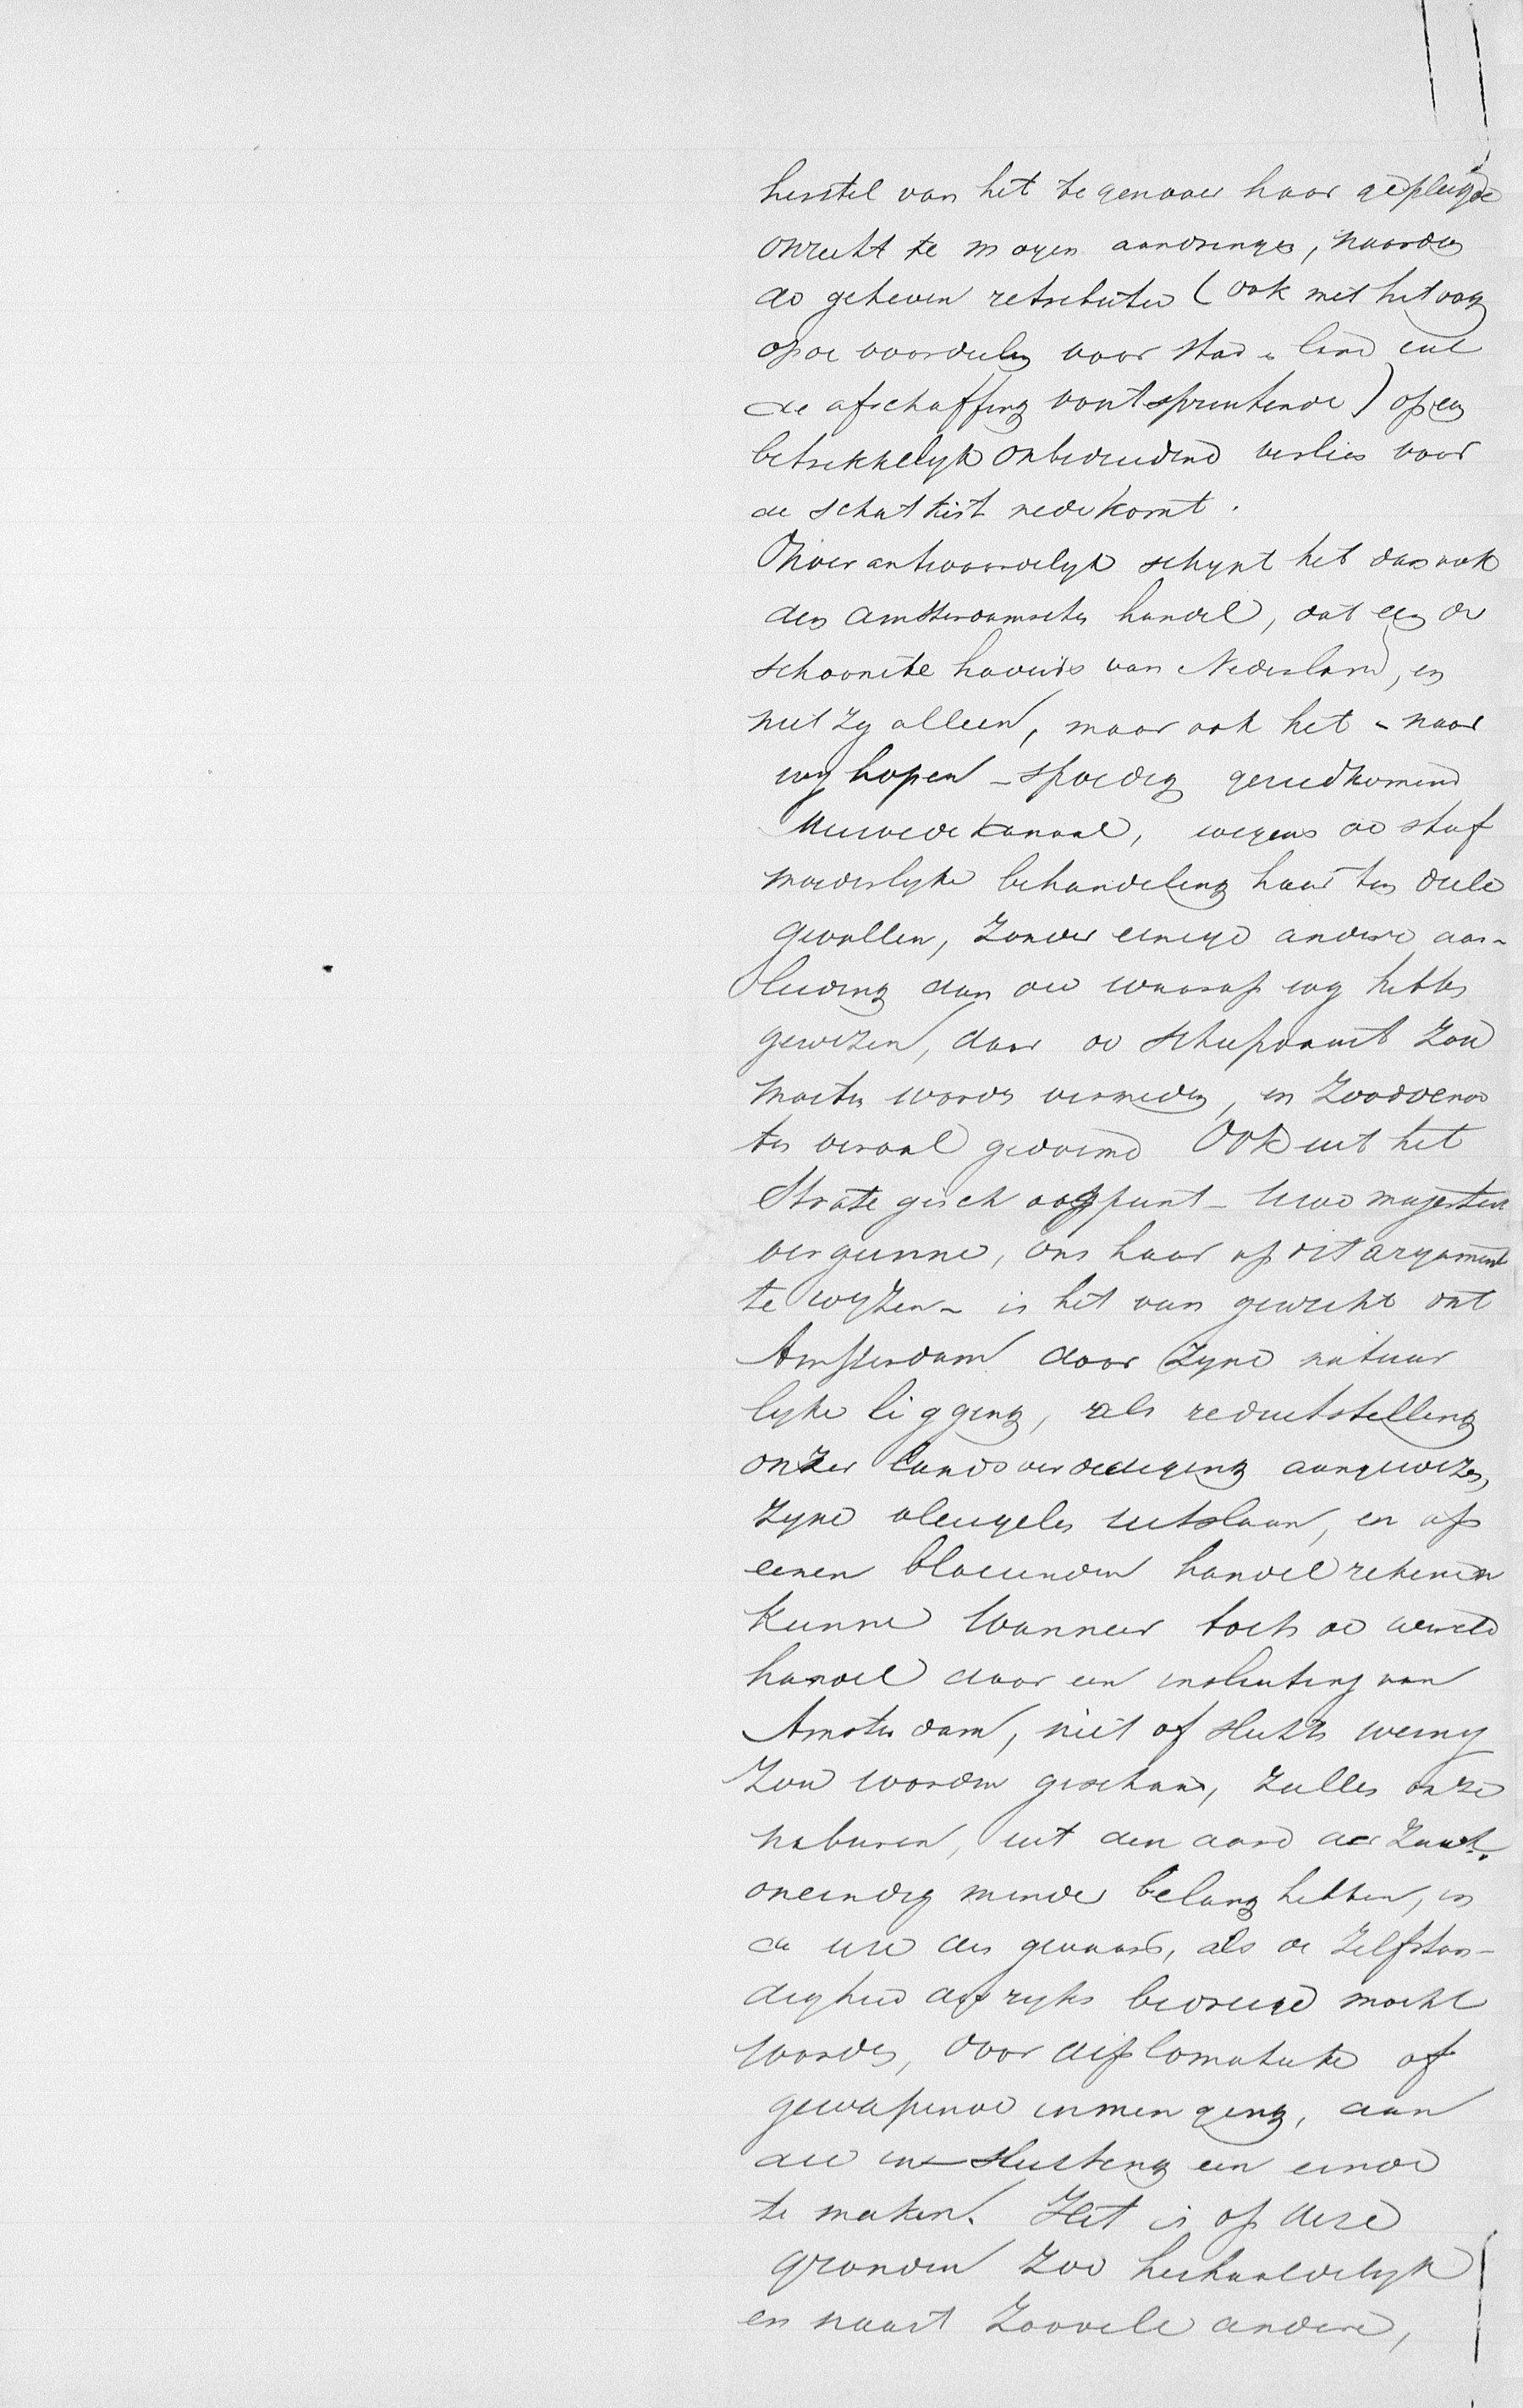 herstel van het tegenover haar gepleegde
onrecht te mogen aandringen, naardien
de geheven retributie (ook met het oog
op de voordeelen voor stad & land uit
de afschaffing voortspruitende) op een
betrekkelyk onbeduidend verlies voor
de schatkist nederkomt.
Onverantwoordelyk schynt het dan ook
den Amsterdamschen handel, dat een der
schoonste havens van Nederland, en
niet zy alleen, maar ook het - naar
wy hopen - spoedig gereedkomend
Merwedekanaal, wegens de stief
moederlyke behandeling haar ten deele
gevallen, zonder eenige andere aan-
leiding dan die waarop wy hebben
gewezen, door de scheepvaart zou
moeten worden vermeden, en zoodoende
ten verval gedoemd Ook uit het
Strategisch oogpunt - Uwe Majesteit
vergunne, ons haar op dit argument
te wyzen - is het van gewicht dat
Amsterdam door zyne natuur
lyke ligging, als reduitstelling
onzer landsverdediging aangewezen,
zyne vleugelen uitslaan, en op
eenen bloeienden handel rekenen
kunne Wanneer toch de wereld
handel door een insluiting van
Amsterdam, niet of slechts weinig
zou worden geschaad, zullen onze
naburen, uit den aard der zaak.
oneindig minder belang hebben, in
de ure des gevaars, als de zelfstan-
digheid des ryks bedreigd mocht
worden, door diplomatieke of
gewapende inmenging, aan
die insluiting een einde
te maken. Het is op deze
gronden zoo herhaaldelyk
en naast zoovele andere,